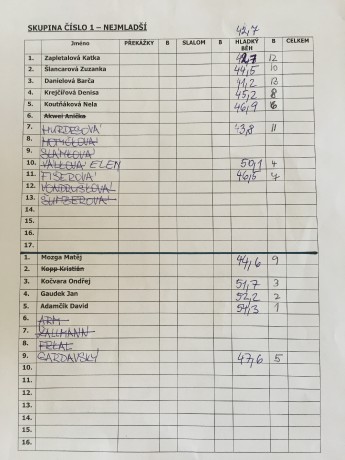 42,7
SKUPINA ČÍSLO 1 – NEJMLADŠÍ
Jméno PŘEKÁŽKY B SLALOM B HLADKÝ BĚH B CELKEM
1. Zapletalová Katka 12
2. Šlancarová Zuzanka 44,5 10
3. Danielová Barča 41,2 13
4. Krejčířová Denisa 45,2 8
5. Koutňáková Nela 46,9 6
6. Akwei Anička
7. HURDESOVÁ 43,8 11
8.
9.
10. VALLOVÁ ELEN 50,1 4
11. FIŠEROVÁ 46,5 7
12. VONDRUŠKOVÁ
13.
14.
15.
16.
17.
1. Mozga Matěj 44,6 9
2. Kopp Kristián
3. Kočvara Ondřej 51,7 3
4. Gaudek Jan 52,2 2
5. Adamčík David 54,3 1
6.
7.
8.
9. SARDAVSKÝ 47,6 5
10.
11.
12.
13.
14.
15.
16.